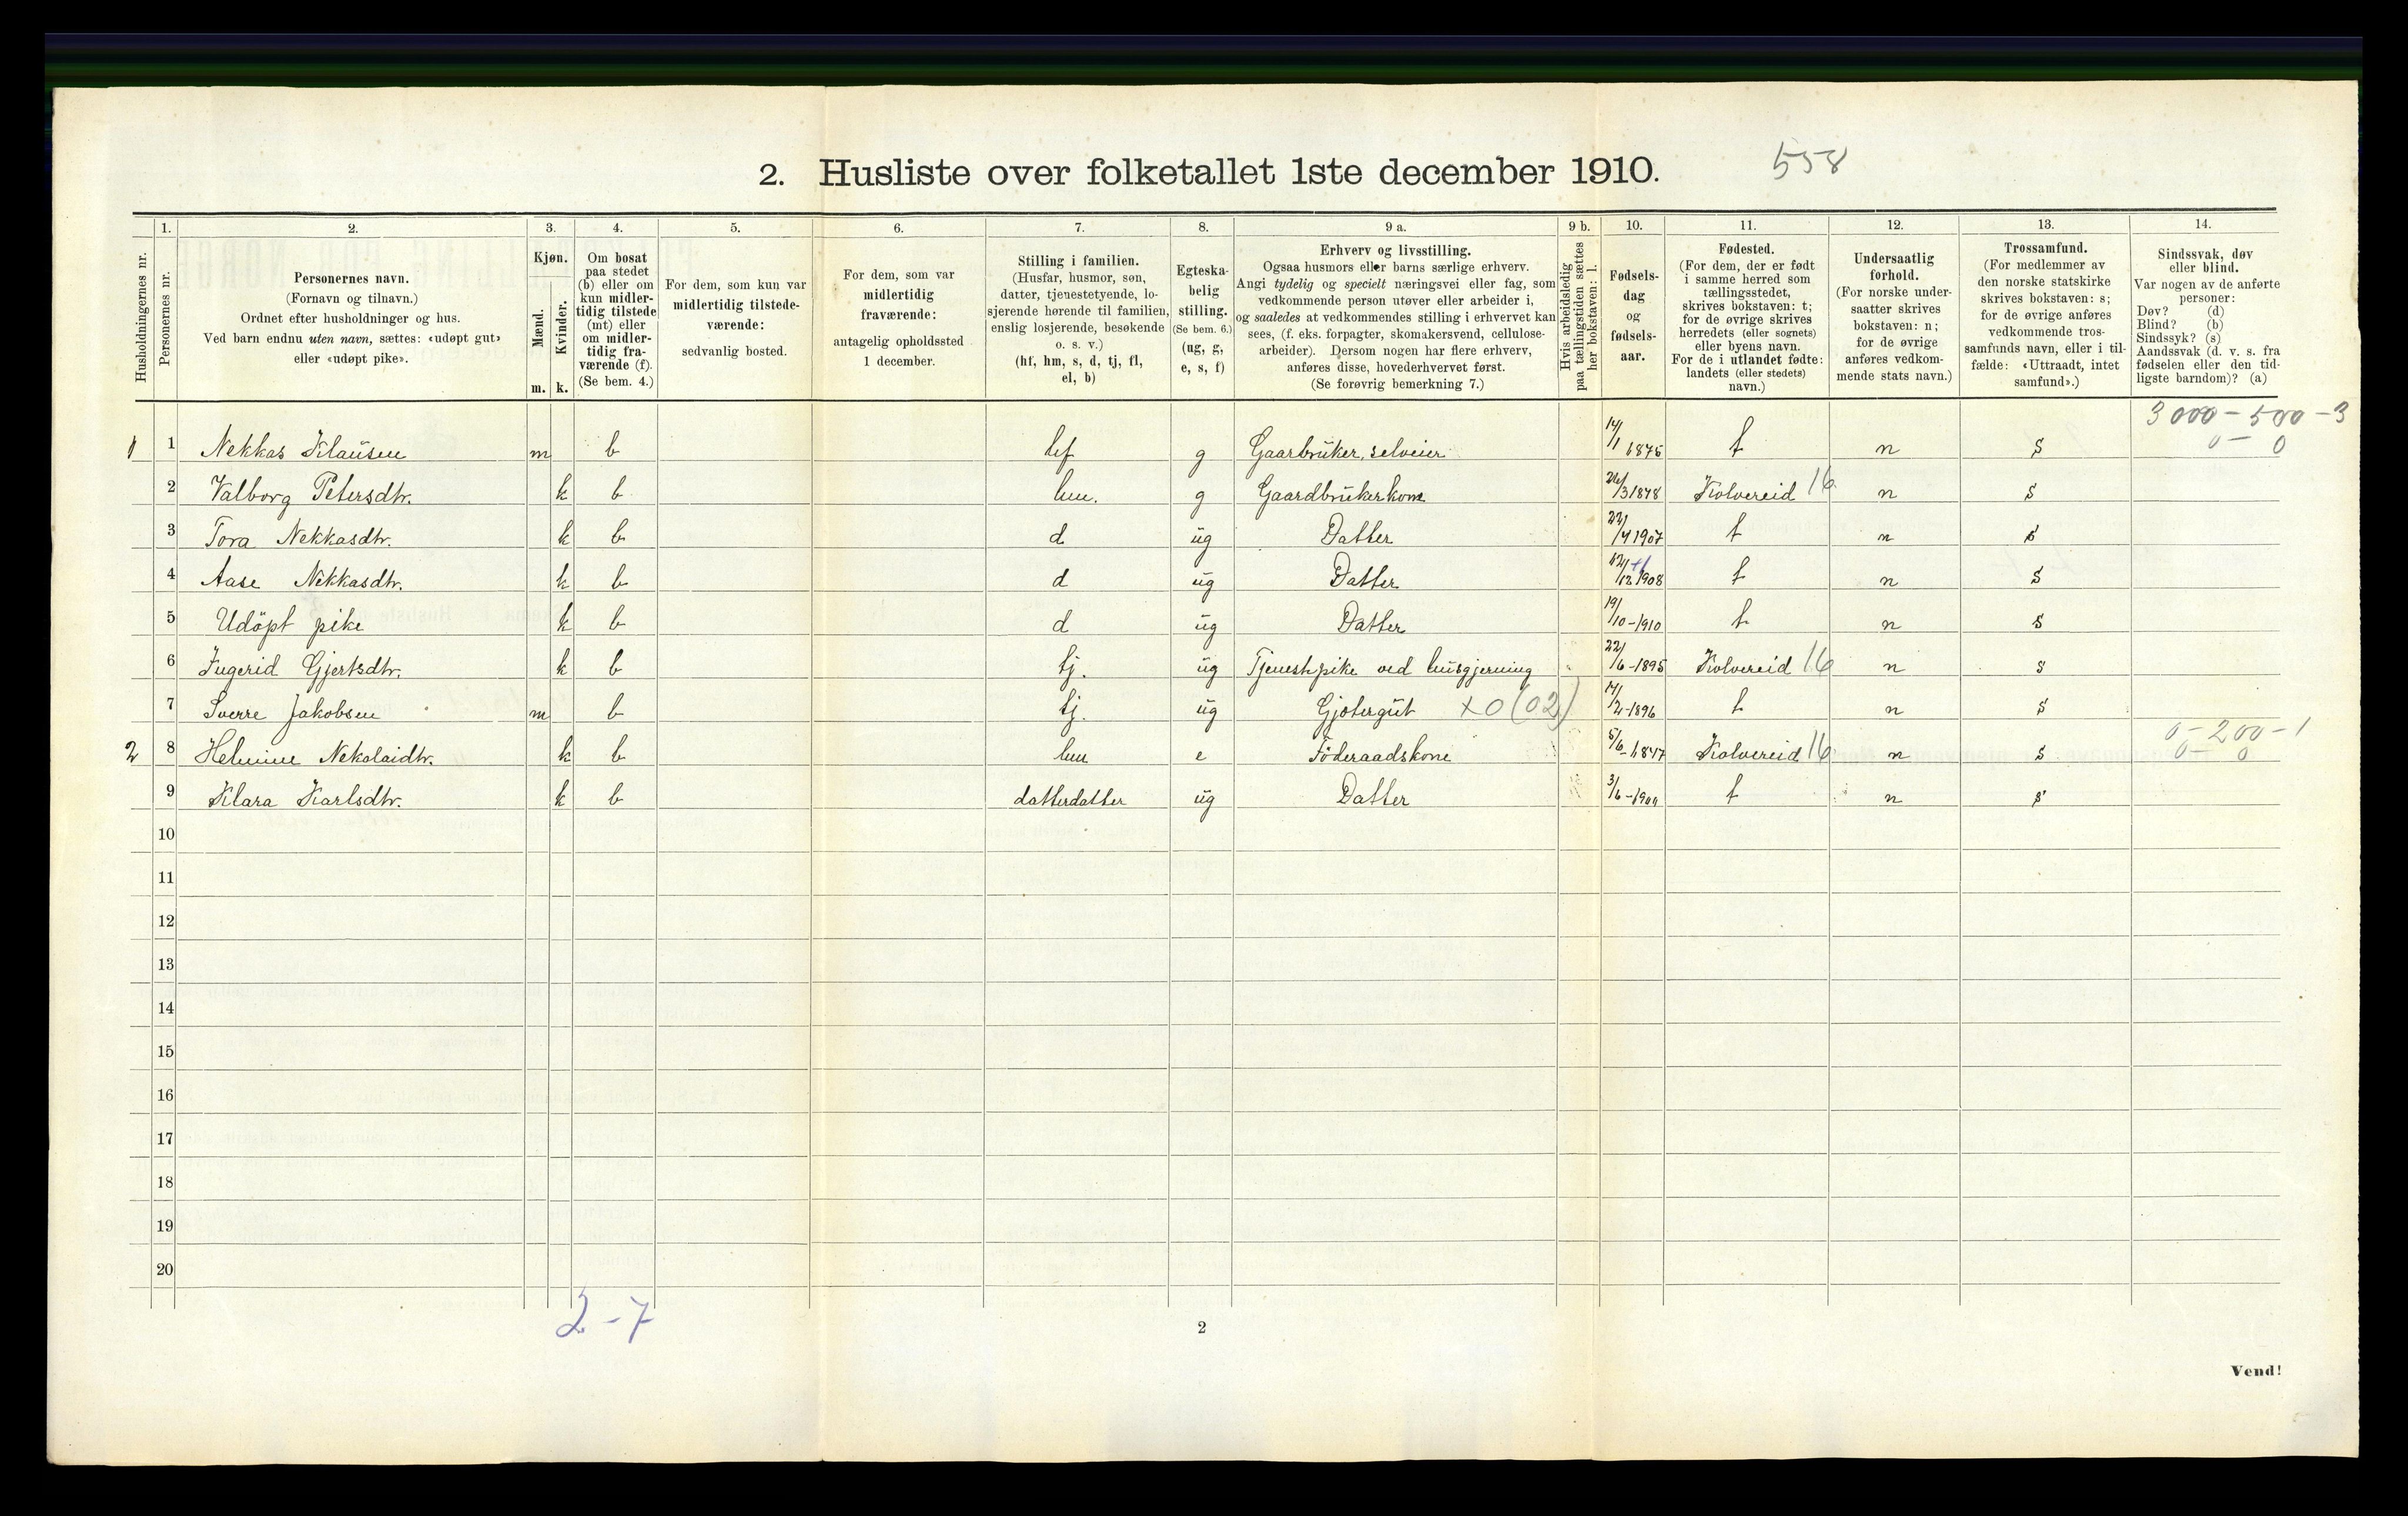 2. Husliste over folketallet 1ste december 1910. 558
1. 2. 3. 4. 5. 6. 7. 8. 9 a. 9 b. 10. 11. 12. 13. 14.
Husholdningernes nr.
Personernes nr.
Personernes navn.
(Fornavn og tilnavn.)
Ordnet efter husholdninger og hus.
Ved barn endnu uten navn, sættes: «udøpt gut»
eller «udøpt pike».
Kjøn.
Mænd.
Kvinder.
m. k.
Om bosat
paa stedet
(b) eller om
kun midler-
tidig tilstede
(mt) eller
om midler-
tidig fra-
værende (f).
(Se bem. 4.)
For dem, som kun var
midlertidig tilstede-
værende:
sedvanlig bosted.
For dem, som var
midlertidig
fraværende:
antagelig opholdssted
1 december.
Stilling i familien.
(Husfar, husmor, søn,
datter, tjenestetyende, lo-
sjerende hørende til familien,
enslig losjerende, besøkende
o. s. v.)
(hf, hm, s, d, tj, fl,
el, b)
Egteska-
belig
stilling.
(Se bem. 6.)
(ug, g,
e, s, f)
Erhverv og livsstilling.
Ogsaa husmors eller barns særlige erhverv.
Angi tydelig og specielt næringsvei eller fag, som
vedkommende person utøver eller arbeider i,
og saaledes at vedkommendes stilling i erhvervet kan
sees, (f. eks. forpagter, skomakersvend, cellulose-
arbeider). Dersom nogen har flere erhverv,
anføres disse, hovederhvervet først.
(Se forøvrig bemerkning 7.)
Hvis arbeidsledig
paa tællingstiden sættes
her bokstaven: l.
Fødsels-
dag
og
fødsels-
aar.
Fødested.
(For dem, der er født
i samme herred som
tællingsstedet,
skrives bokstaven: t;
for de øvrige skrives
herredets (eller sognets)
eller byens navn.
For de i utlandet fødte:
landets (eller stedets)
navn.)
Undersaatlig
forhold.
(For norske under-
saatter skrives
bokstaven: n;
for de øvrige
anføres vedkom-
mende stats navn.)
Trossamfund.
(For medlemmer av
den norske statskirke
skrives bokstaven: s;
for de øvrige anføres
vedkommende tros-
samfunds navn, eller i til-
fælde: «Uttraadt, intet
samfund».)
Sindssvak, døv
eller blind.
Var nogen av de anførte
personer:
Døv? (d)
Blind? (b)
Sindssyk? (s)
Aandssvak (d. v. s. fra
fødselen eller den tid-
ligste barndom)? (a)
3000-500-3
0- 0
1 1 Nekkas Klausen m b hf g Gaarbruker, selveier 14/1 1875 t n s
2 Valborg Petersdtr. k b hm. g Gaardbrukerkone 26/3 1878 Kolvereid 16 n s
3 Tora Nekkasdtr. k b d ug Datter 22/4 1907 t n s
4 Aase Nekkasdtr. k b d ug Datter 12/12 1908 t n s
5 Udöpt pike k b d ug Datter 19/10-1910 t n s
6 Ingerid Gjertsdtr. k b tj. ug Tjenestpike ved husgjerning 22/6-1895 Kolvereid 16 n s
7 Sverre Jakobsen m b tj. ug Gjætergut XO (02) 1896 t n s
0-200-1
0- 0
2 8 Helmine Nekolaidtr. k b hm e Föderaadskone 5/6-1847 Kolvereid 16 n s
9 Klara Karlsdtr. k b datterdatter ug Datter 3/6-1900 t n s
10
11
12
13
14
15
16
17
18
19
20
2-7
2
Vend!